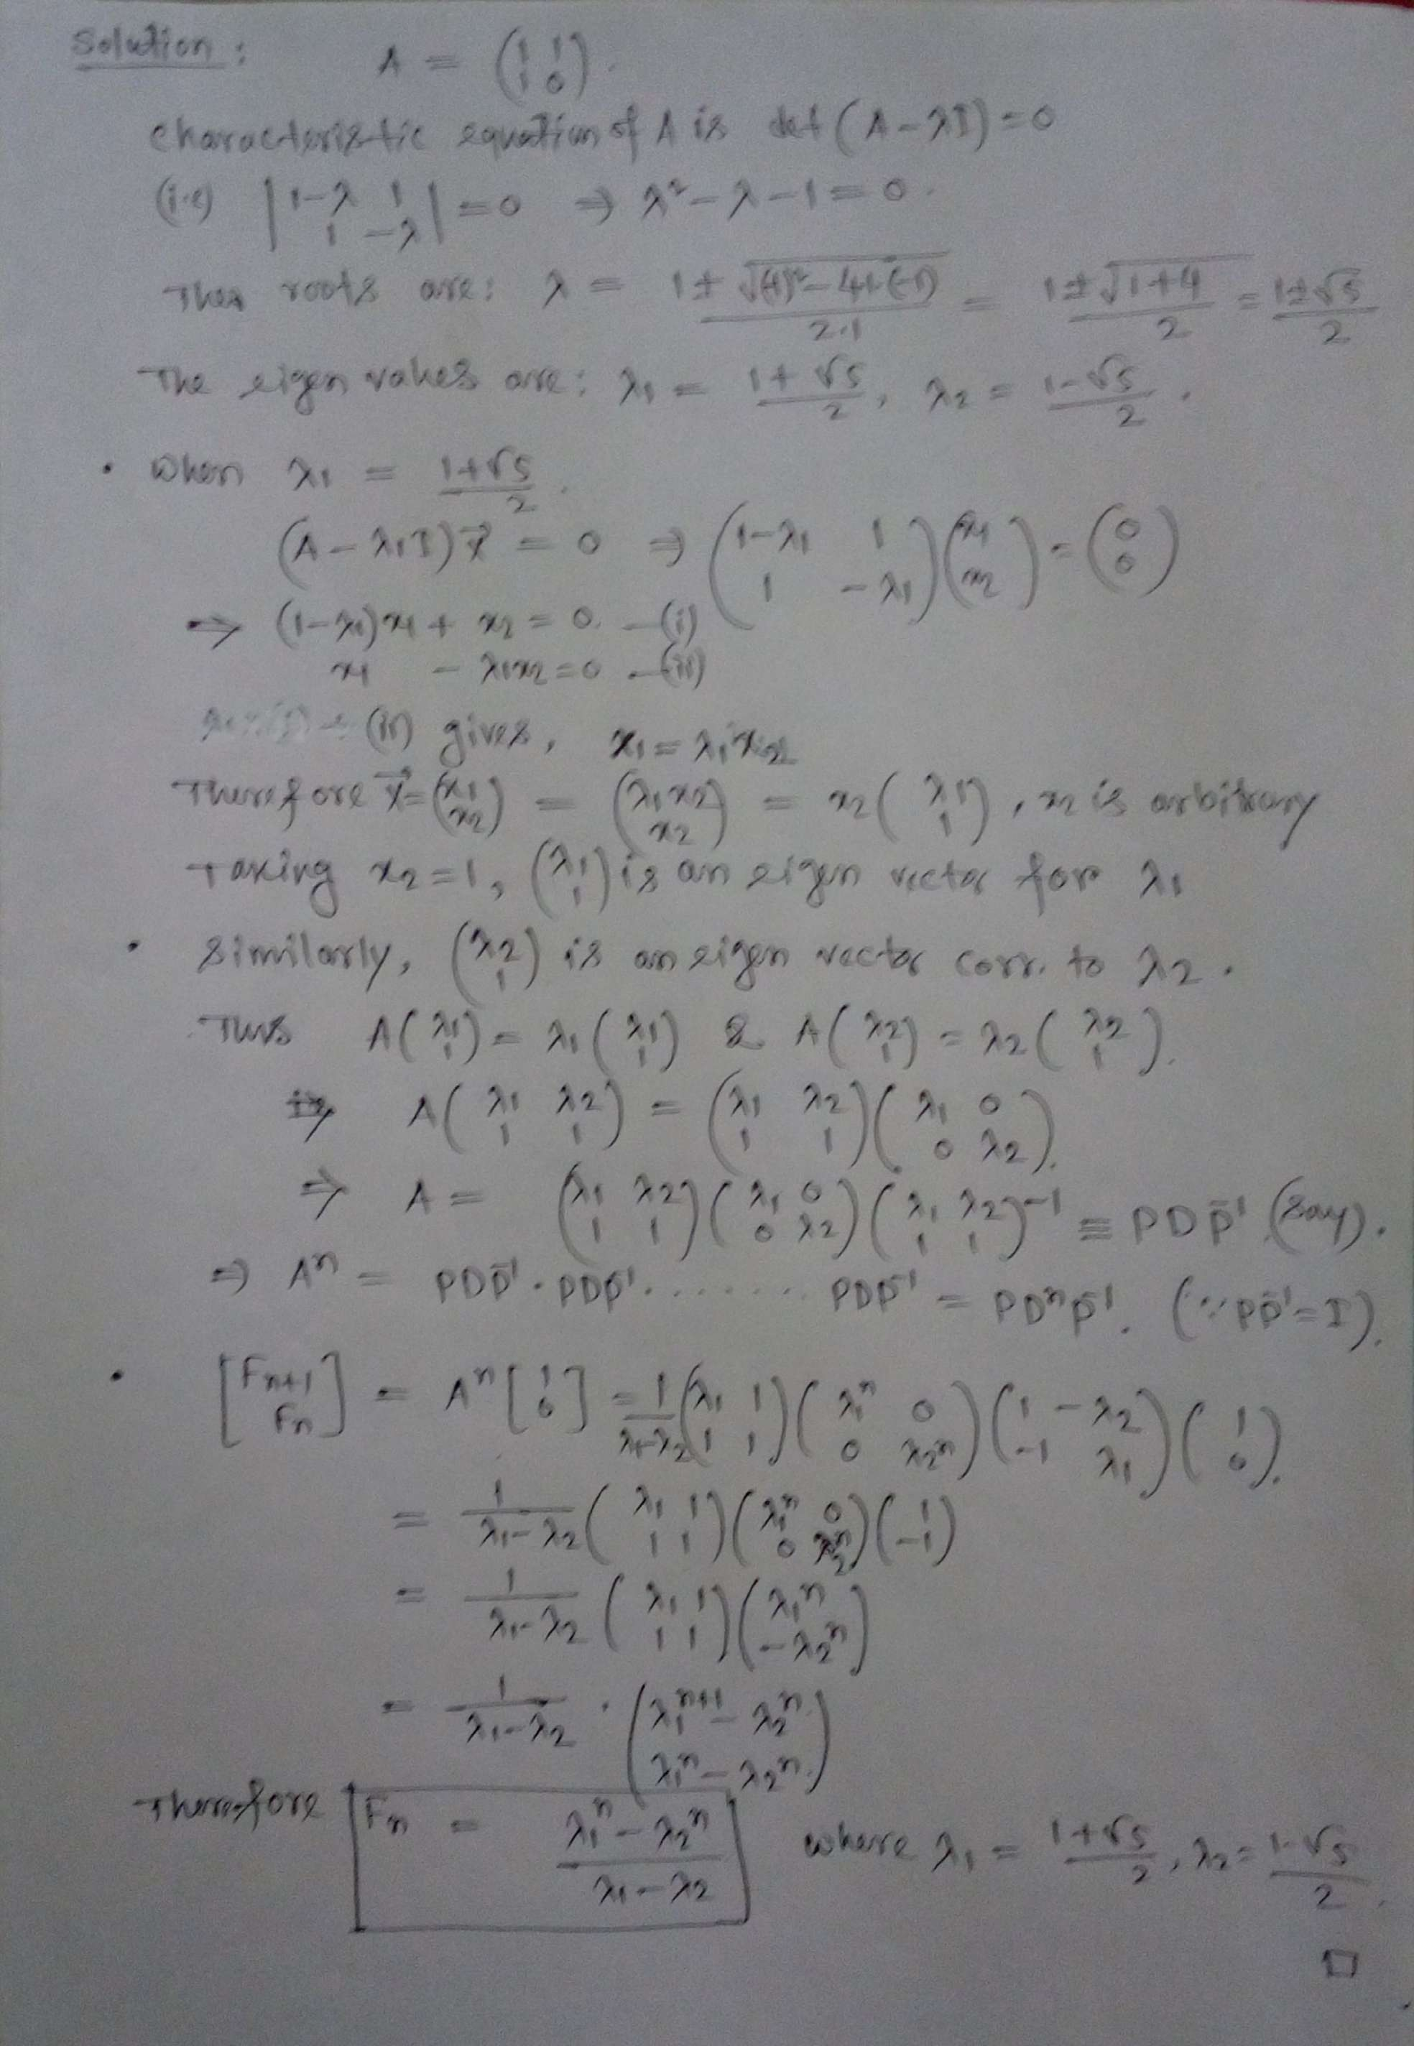 Solution : A = (1 1
1 0).
Characteristic equation of A is det (A-λI)=0
(i.e) |1-λ 1
1 -λ| = 0 ⇒ λ²-λ-1=0.
roots are: λ = (1±√((-1)²-4·1·(-1)))/2.1 = (1±√1+4)/2 = (1±√5)/2
The eigen values are: λ1 = (1+√5)/2, λ2 = (1-√5)/2.
• When λ1 = (1+√5)/2.
(A-λ1I)x⃗ = 0 ⇒ (1-λ1 1
1 -λ1)(x1
x2) = (0
0)
⇒ (1-λ1)x1 + x2 = 0. —(i)
x1 - λ1x2 = 0 —(ii)
(ii) gives, x1 = λ1x2
Therefore x⃗=(x1
x2) = (λ1x2
x2) = x2(λ1
1), x2 is arbitrary
Taking x2=1, (λ1
1) is an eigen vector for λ1
• Similarly, (λ2
1) is an eigen vector corr. to λ2.
Thus A(λ1
1) = λ1(λ1
1) & A(λ2
1) = λ2(λ2
1).
⇒ A(λ1 λ2
1 1) = (λ1 λ2
1 1)(λ1 0
0 λ2).
⇒ A = (λ1 λ2
1 1)(λ1 0
0 λ2)(λ1 λ2
1 1)⁻¹ ≡ PDP⁻¹ (say).
⇒ Aⁿ = PDP⁻¹.PDP⁻¹........ PDP⁻¹ = PDⁿP⁻¹. (∵PP⁻¹=I).
• [Fn+1
Fn] = Aⁿ[1
0] = 1/(λ1-λ2) (λ1 1
1 1)(λ1ⁿ 0
0 λ2ⁿ)(1 -λ2
-1 λ1)(1
0).
= 1/(λ1-λ2) (λ1 1
1 1)(λ1ⁿ 0
0 λ2ⁿ)(1
-1)
= 1/(λ1-λ2) (λ1 1
1 1)(λ1ⁿ
-λ2ⁿ)
= 1/(λ1-λ2) · (λ1ⁿ⁺¹-λ2ⁿ
λ1ⁿ-λ2ⁿ)
Therefore Fn = (λ1ⁿ-λ2ⁿ)/(λ1-λ2) where λ1 = (1+√5)/2, λ2 = (1-√5)/2.